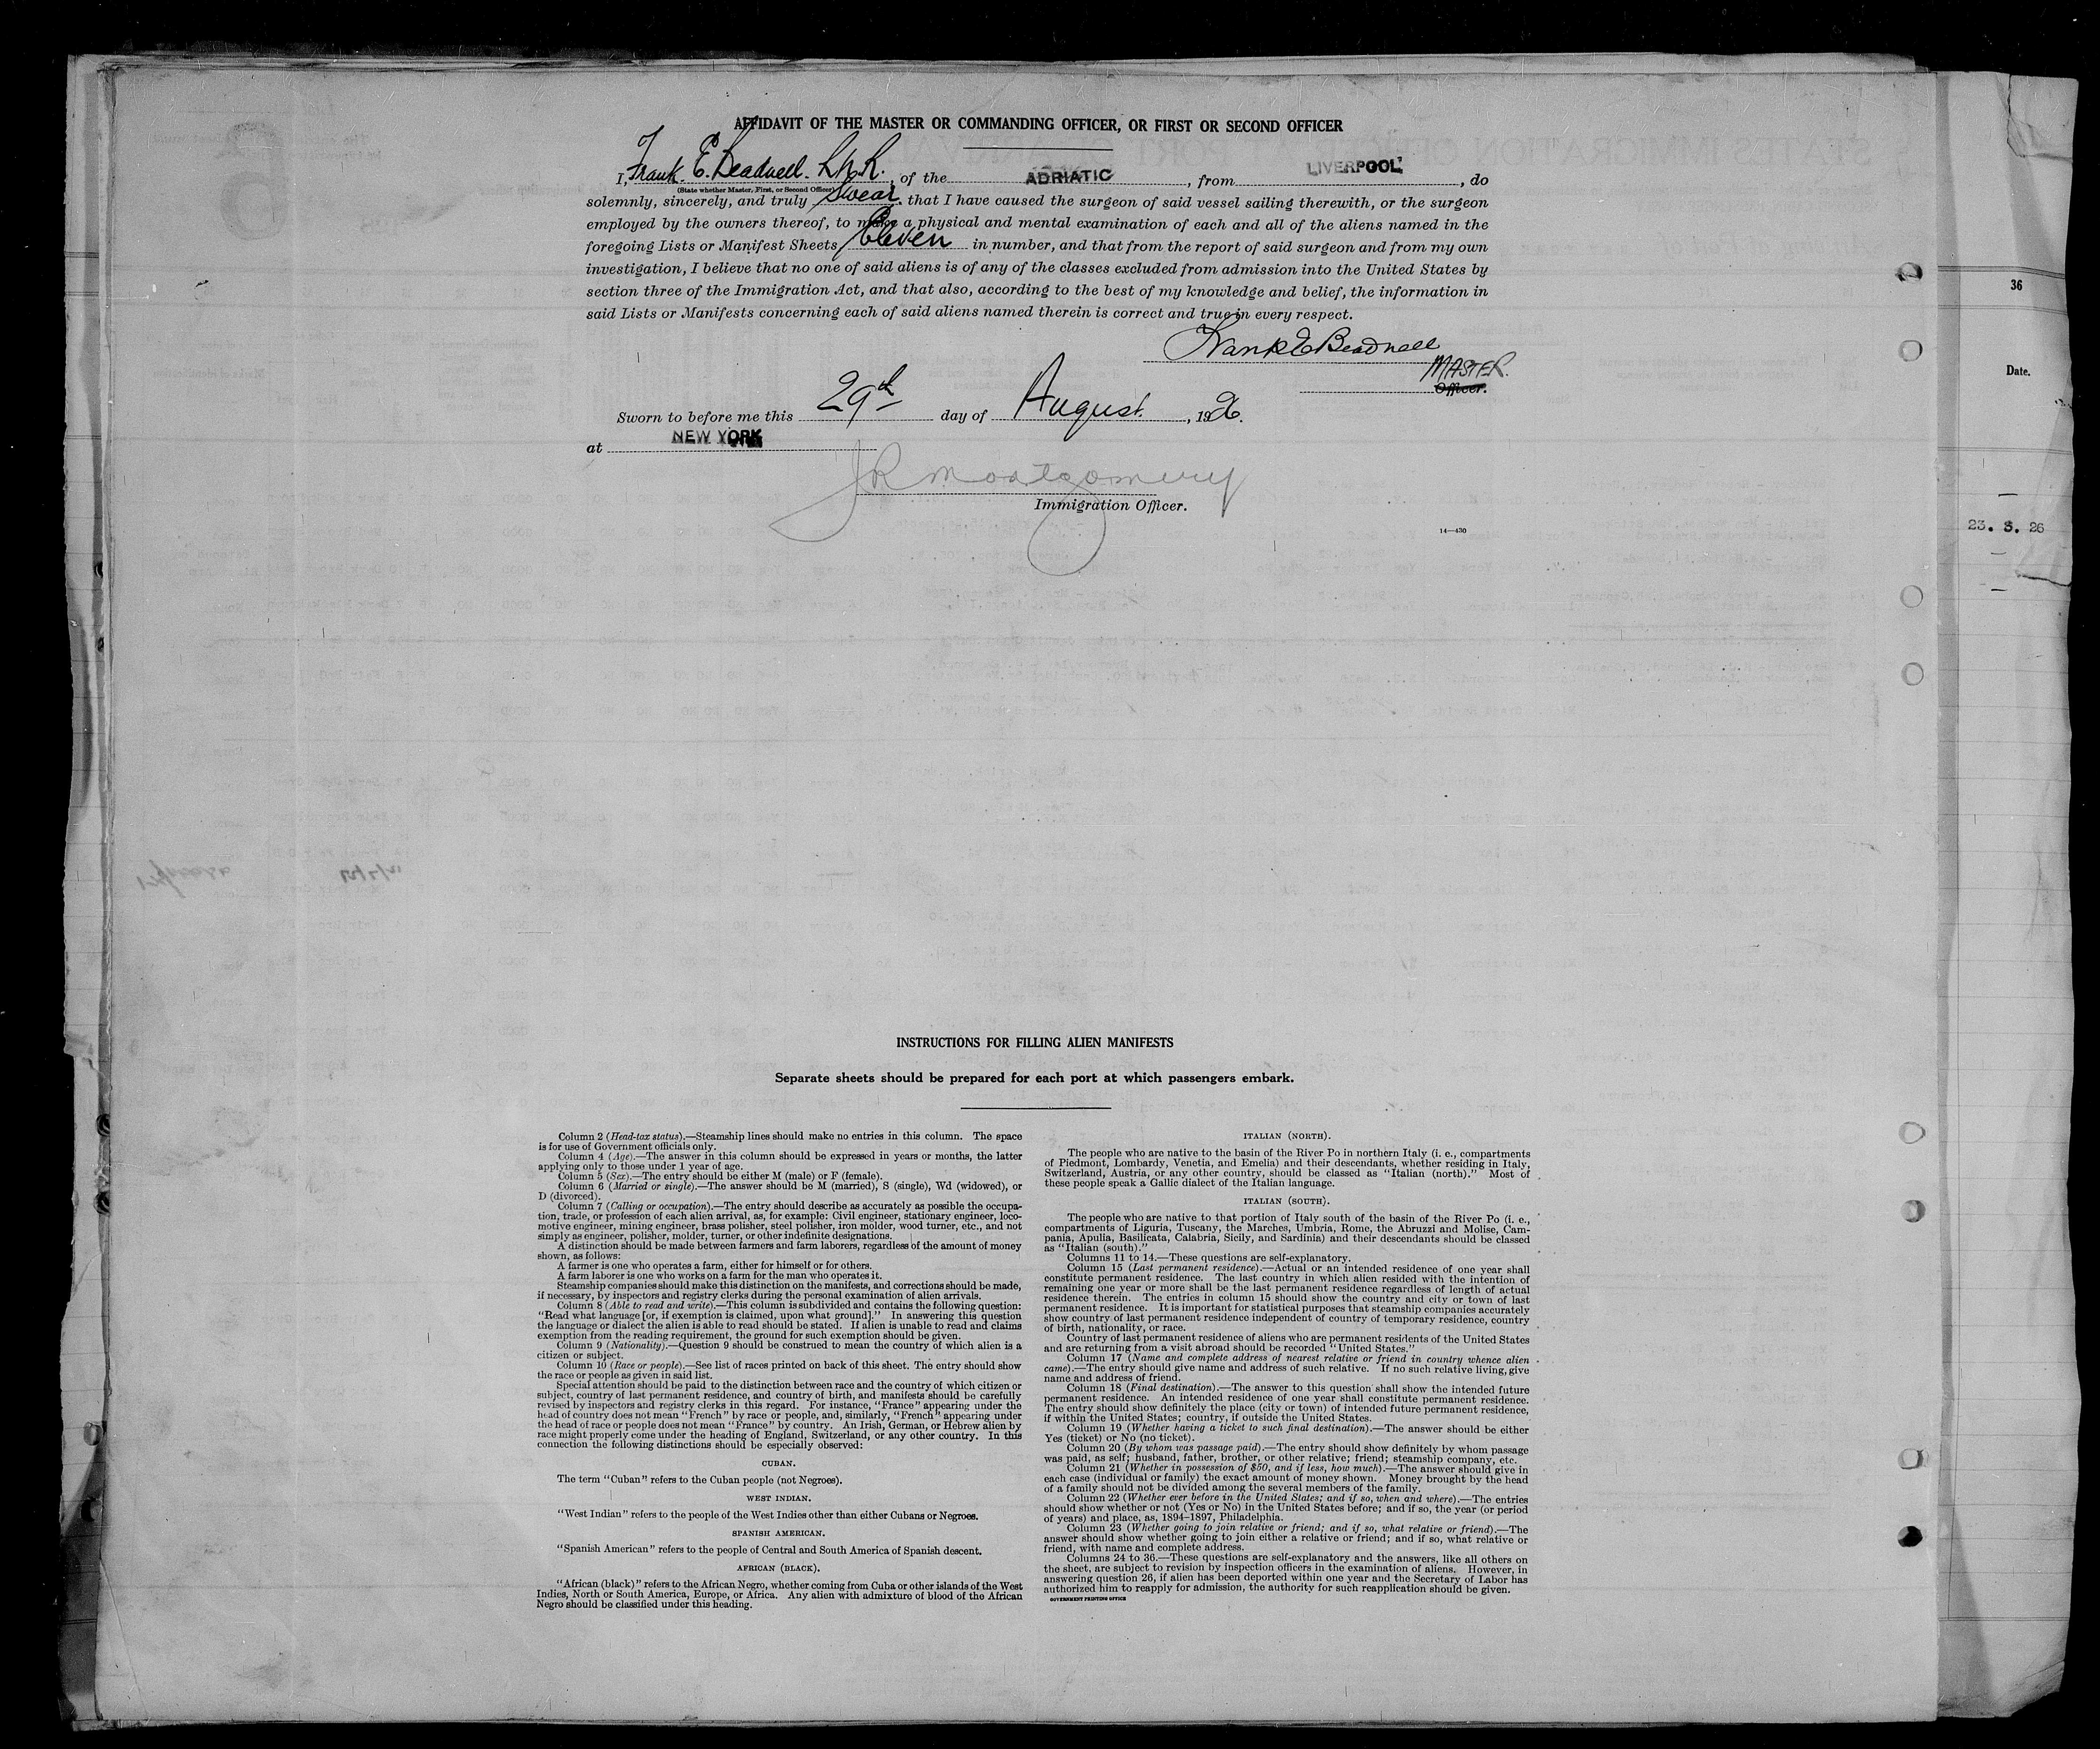 AFFIDAVIT OF THE MASTER OR COMMANDING OFFICER, OR FIRST OR SECOND OFFICER
I, Frank E. Beadnell. R.N.R. of the ADRIATIC, from LIVERPOOL, do
(State whether Master, First, or Second Officer)
solemnly, sincerely, and truly swear that I have caused the surgeon of said vessel sailing therewith, or the surgeon
employed by the owners thereof, to make a physical and mental examination of each and all of the aliens named in the
foregoing Lists or Manifest Sheets, Eleven in number, and that from the report of said surgeon and from my own
investigation, I believe that no one of said aliens is of any of the classes excluded from admission into the United States by
section three of the Immigration Act, and that also, according to the best of my knowledge and belief, the information in
said Lists or Manifests concerning each of said aliens named therein is correct and true in every respect.
Frank E Beadnell
MASTER.
Officer.
Sworn to before me this 29th day of August, 1926.
at NEW YORK
J R Montgomery
Immigration Officer.
14—430
36
Date.
23. 3. 26
INSTRUCTIONS FOR FILLING ALIEN MANIFESTS
Separate sheets should be prepared for each port at which passengers embark.
Column 2 (Head-tax status).—Steamship lines should make no entries in this column. The space
is for use of Government officials only.
Column 4 (Age).—The answer in this column should be expressed in years or months, the latter
applying only to those under 1 year of age.
Column 5 (Sex).—The entry should be either M (male) or F (female).
Column 6 (Married or single).—The answer should be M (married), S (single), Wd (widowed), or
D (divorced).
Column 7 (Calling or occupation).—The entry should describe as accurately as possible the occupa-
tion, trade, or profession of each alien arrival, as, for example: Civil engineer, stationary engineer, loco-
motive engineer, mining engineer, brass polisher, steel polisher, iron molder, wood turner, etc., and not
simply as engineer, polisher, molder, turner, or other indefinite designations.
A distinction should be made between farmers and farm laborers, regardless of the amount of money
shown, as follows:
A farmer is one who operates a farm, either for himself or for others.
A farm laborer is one who works on a farm for the man who operates it.
Steamship companies should make this distinction on the manifests, and corrections should be made,
if necessary, by inspectors and registry clerks during the personal examination of alien arrivals.
Column 8 (Able to read and write).—This column is subdivided and contains the following question:
"Read what language [or, if exemption is claimed, upon what ground]." In answering this question
the language or dialect the alien is able to read should be stated. If alien is unable to read and claims
exemption from the reading requirement, the ground for such exemption should be given.
Column 9 (Nationality).—Question 9 should be construed to mean the country of which alien is a
citizen or subject.
Column 10 (Race or people).—See list of races printed on back of this sheet. The entry should show
the race or people as given in said list.
Special attention should be paid to the distinction between race and the country of which citizen or
subject, country of last permanent residence, and country of birth, and manifests should be carefully
revised by inspectors and registry clerks in this regard. For instance, "France" appearing under the
head of country does not mean "French" by race or people, and, similarly, "French" appearing under
the head of race or people does not mean "France" by country. An Irish, German, or Hebrew alien by
race might properly come under the heading of England, Switzerland, or any other country. In this
connection the following distinctions should be especially observed:
CUBAN.
The term "Cuban" refers to the Cuban people (not Negroes).
WEST INDIAN.
"West Indian" refers to the people of the West Indies other than either Cubans or Negroes.
SPANISH AMERICAN.
"Spanish American" refers to the people of Central and South America of Spanish descent.
AFRICAN (BLACK).
"African (black)" refers to the African Negro, whether coming from Cuba or other islands of the West
Indies, North or South America, Europe, or Africa. Any alien with admixture of blood of the African
Negro should be classified under this heading.
ITALIAN (NORTH).
The people who are native to the basin of the River Po in northern Italy (i. e., compartments
of Piedmont, Lombardy, Venetia, and Emelia) and their descendants, whether residing in Italy,
Switzerland, Austria, or any other country, should be classed as "Italian (north)." Most of
these people speak a Gallic dialect of the Italian language.
ITALIAN (SOUTH).
The people who are native to that portion of Italy south of the basin of the River Po (i. e.,
compartments of Liguria, Tuscany, the Marches, Umbria, Rome, the Abruzzi and Molise, Cam-
pania, Apulia, Basilicata, Calabria, Sicily, and Sardinia) and their descendants should be classed
as "Italian (south)."
Columns 11 to 14.—These questions are self-explanatory.
Column 15 (Last permanent residence).—Actual or an intended residence of one year shall
constitute permanent residence. The last country in which alien resided with the intention of
remaining one year or more shall be the last permanent residence regardless of length of actual
residence therein. The entries in column 15 should show the country and city or town of last
permanent residence. It is important for statistical purposes that steamship companies accurately
show country of last permanent residence independent of country of temporary residence, country
of birth, nationality, or race.
Country of last permanent residence of aliens who are permanent residents of the United States
and are returning from a visit abroad should be recorded "United States."
Column 17 (Name and complete address of nearest relative or friend in country whence alien
came).—The entry should give name and address of such relative. If no such relative living, give
name and address of friend.
Column 18 (Final destination).—The answer to this question shall show the intended future
permanent residence. An intended residence of one year shall constitute permanent residence.
The entry should show definitely the place (city or town) of intended future permanent residence,
if within the United States; country, if outside the United States.
Column 19 (Whether having a ticket to such final destination).—The answer should be either
Yes (ticket) or No (no ticket).
Column 20 (By whom was passage paid).—The entry should show definitely by whom passage
was paid, as self; husband, father, brother, or other relative; friend; steamship company, etc.
Column 21 (Whether in possession of $50, and if less, how much).—The answer should give in
each case (individual or family) the exact amount of money shown. Money brought by the head
of a family should not be divided among the several members of the family.
Column 22 (Whether ever before in the United States; and if so, when and where).—The entries
should show whether or not (Yes or No) in the United States before; and if so, the year (or period
of years) and place, as, 1894–1897, Philadelphia.
Column 23 (Whether going to join relative or friend; and if so, what relative or friend).—The
answer should show whether going to join either a relative or friend; and if so, what relative or
friend, with name and complete address.
Columns 24 to 36.—These questions are self-explanatory and the answers, like all others on
the sheet, are subject to revision by inspection officers in the examination of aliens. However, in
answering question 26, if alien has been deported within one year and the Secretary of Labor has
authorized him to reapply for admission, the authority for such reapplication should be given.
GOVERNMENT PRINTING OFFICE